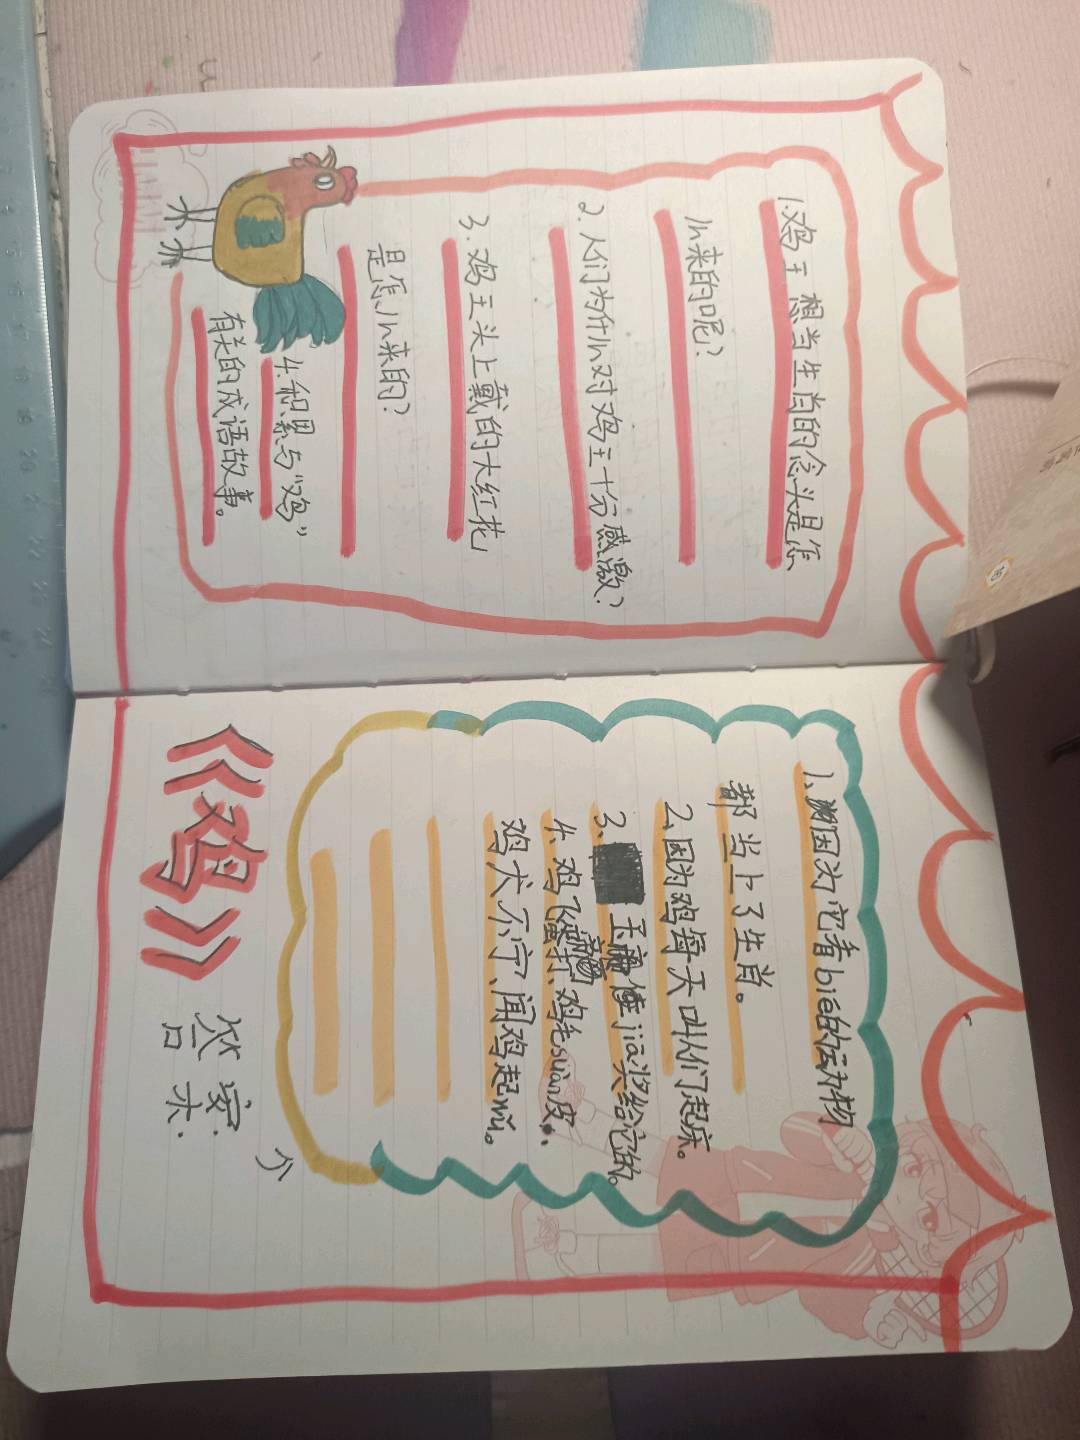 1.鸡王想当生肖的念头是怎
么来的呢?
2.人们为什么对鸡王十分感激?
3.鸡王头上戴的大红花
是怎么来的?
4.积累与“鸡”
有关的成语故事。
1.因为它看bié的动物
都当上了生肖。
2.因为鸡每天叫人们起床。
3.玉帝jiǎng给它的。
4.鸡飞蛋打、鸡毛suàn皮、
鸡犬不宁、闻鸡起wǔ。
《鸡》答案